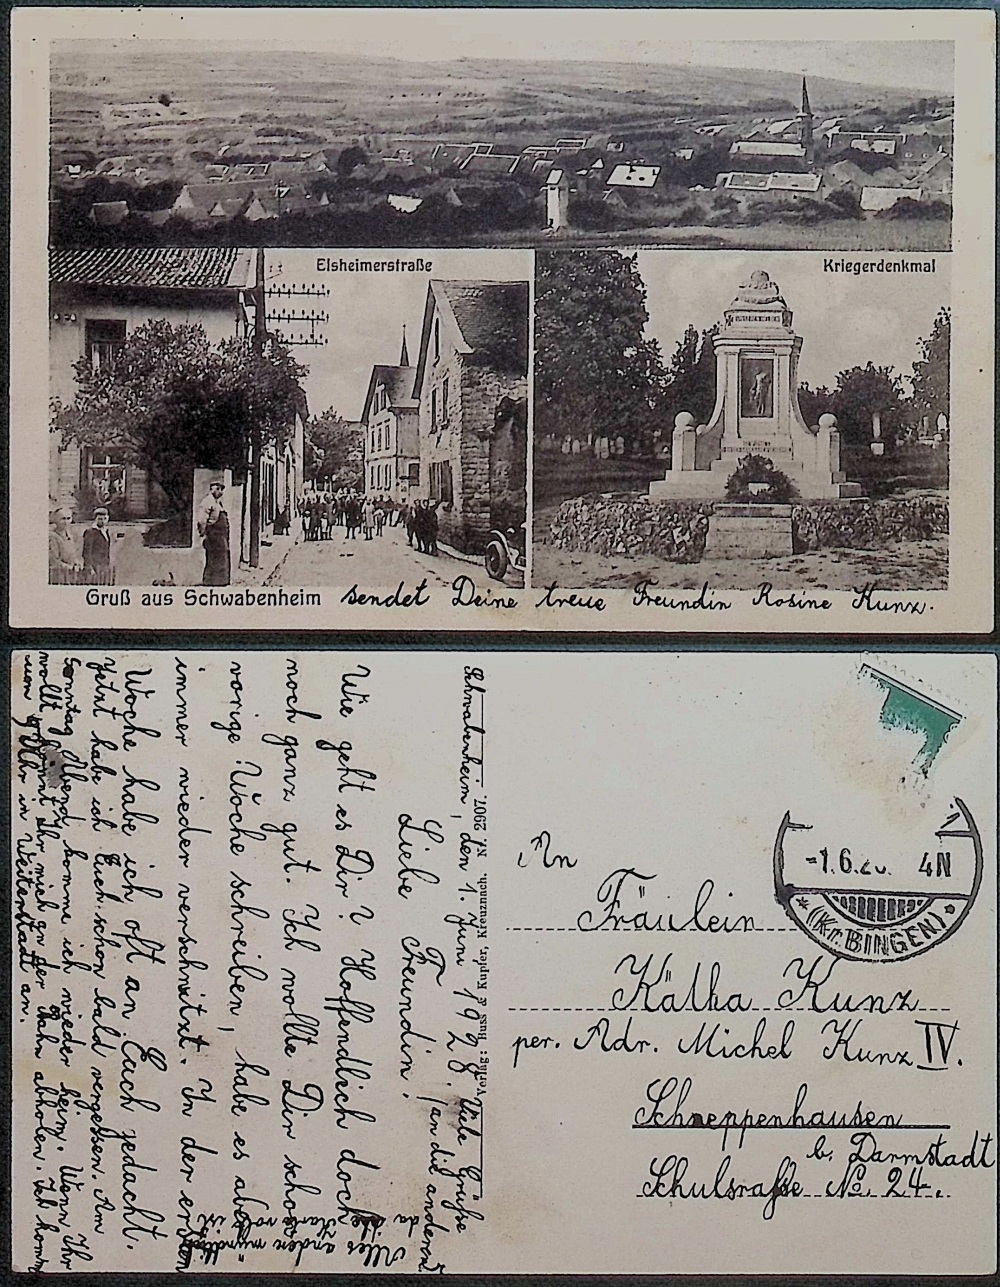 Elsheimerstraße
Kriegerdenkmal
Gruß aus Schwabenheim sendet Deine treue Freundin Rosine Kunz.
Schwabenheim, den 1. Juni 1928.
Liebe Freundin!
Wie geht es Dir? Hoffendlich doch
noch ganz gut. Ich wollte Dir schon
vorige Woche schreiben, habe es aber
immer wieder verschwitzt. In der ersten
Woche habe ich oft an Euch gedacht.
Jetzt habe ich Euch schon bald vergessen. Am
Sonntag Abend komme ich wieder heim. Wenn Ihr
wollt könnt Ihr mich an der Bahn abholen. Ich komm
Uhr in Weiterstadt an.
Alles andere mündlich
da die Karte voll ist
Viele Grüße
an die anderen.
Verlag: Huss & Kupfer, Kreuznach. Nr. 2907.
-1.6.28. 4N
(Kr. BINGEN)
An
Fräulein
Kätha Kunz
per. Adr. Michel Kunz IV.
Schneppenhausen
b. Darmstadt
Schulsraße No. 24.